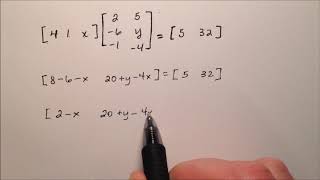 [ 4 1 x ] [ 2 5
-6 y
-1 -4 ] = [ 5 32 ]
[ 8-6-x 20+y-4x ] = [ 5 32 ]
[ 2-x 20+y-4x